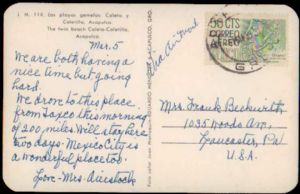 J. H. 118. Las playas gemelas Caleta y
Caletilla, Acapulco.
The twin beach Caleta-Caletilla,
Acapulco.
Mar. 5
We are both having a
nice time but going
hard.
We drove to this place
from Taxco this morning
of 200 miles. Will stay here
two days. Mexico City is
a wonderful place too.
Love - Mrs.
Via Air Mail
50 CTS
CORREO
AEREO
Mrs. Frank Beckwith
1035 Woods Ave,
Lancaster, Pa
U.S.A.